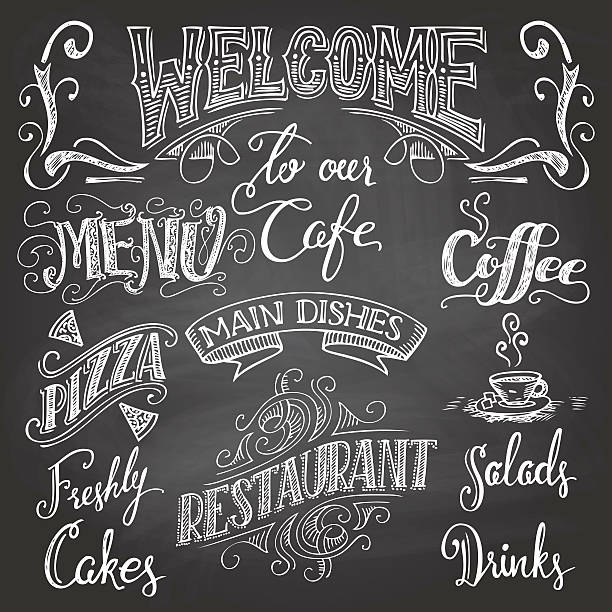 WELCOME
to our
Cafe
MENU
Coffee
MAIN DISHES
PIZZA
RESTAURANT
Freshly
Cakes
Salads
Drinks